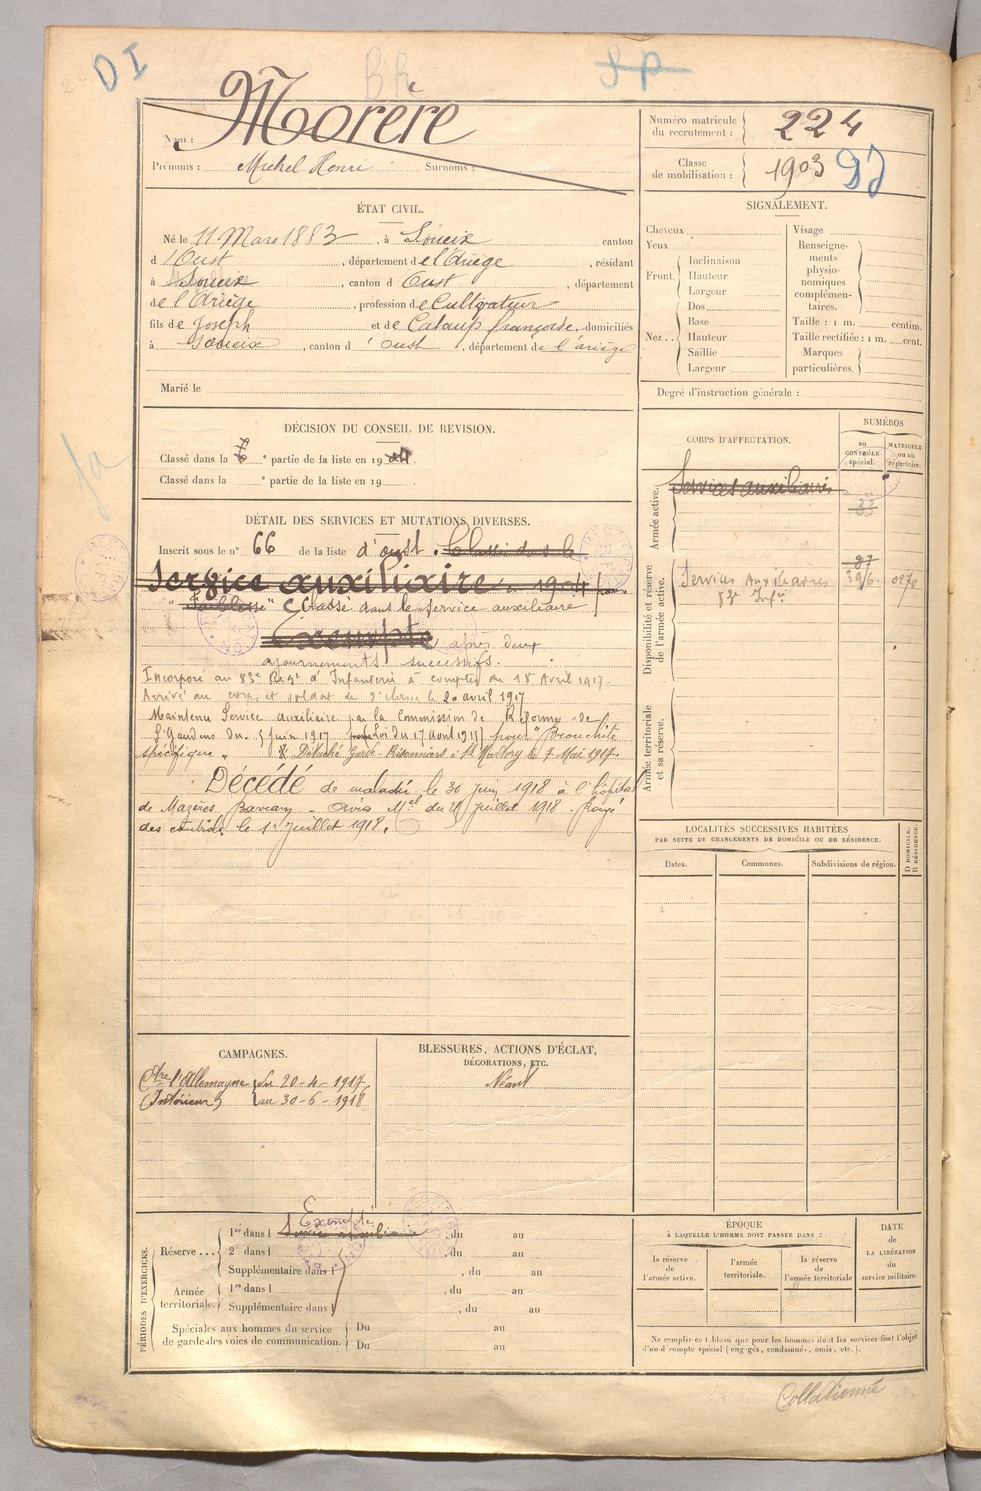 DI
BR
SP
Nom : Morère
Prénoms : Michel Henri Surnoms :
Numéro matricule du recrutement : 224
Classe de mobilisation : 1903
ÉTAT CIVIL.
Né le 11 Mars 1883, à Soueix canton
d'Oust, département de l'Ariège, résidant
à Soueix, canton d'Oust, département
de l'Ariège, profession de Cultivateur
fils de Joseph et de Cataup françoise, domiciliés
à Soueix, canton d'oust, département de l'ariège
Marié le
SIGNALEMENT.
Cheveux
Yeux
Front. Inclinaison
Hauteur
Largeur
Nez .. Dos
Base
Hauteur
Saillie
Largeur
Visage
Renseigne-
ments
physio-
nomiques
complémen-
taires.
Taille : 1 m. centim.
Taille rectifiée : 1 m. cent.
Marques
particulières.
Degré d'instruction générale :
DÉCISION DU CONSEIL DE REVISION.
Classé dans la ° partie de la liste en 19
Classé dans la ° partie de la liste en 19
DÉTAIL DES SERVICES ET MUTATIONS DIVERSES.
Inscrit sous le n° 66 de la liste d'oust. Classé dans le
Service auxiliaire 1904 pour
"Faiblesse" Classé dans le service auxiliaire
Exempté après deux
ajournements successifs.
Incorporé au 83e Régt d'Infanterie à compter du 18 Avril 1917.
Arrivé au corps et soldat de 2e classe le 20 avril 1917
Maintenu Service auxiliaire par la Commission de Réforme de
St Gaudens du 5 juin 1917 Loi du 17 aout 1915 pour "Bronchite
spécifique" Détaché Garde-Prisonniers à St Martory le 7 Mai 1917.
Décédé de maladie le 30 juin 1918 à l'hôpital
de Mazères Avis Mel du 28 juillet 1918. Rayé
des contrôles le 1er juillet 1918.
CORPS D'AFFECTATION.
NUMÉROS
au CONTRÔLE spécial.
MATRICULE ou au répertoire.
Armée active.
Services auxiliaires
33
Disponibilité et réserve de l'armée active.
Services Auxiliaires
83e Infie
0270
Armée territoriale et sa réserve.
LOCALITÉS SUCCESSIVES HABITÉES
PAR SUITE DE CHANGEMENTS DE DOMICILE OU DE RÉSIDENCE.
Dates.
Communes.
Subdivisions de région.
D DOMICILE.
R RÉSIDENCE.
CAMPAGNES.
Ctre l'Allemagne du 20-4-1917
(Intérieur) au 30-6-1918
BLESSURES, ACTIONS D'ÉCLAT,
DÉCORATIONS, ETC.
Néant
PÉRIODES D'EXERCICES.
Exempté
Réserve ... 1re dans l Service auxiliaire, du au
2e dans l , du au
Supplémentaire dans l , du au
Armée territoriale. 1re dans l , du au
Supplémentaire dans l , du au
Spéciales aux hommes du service
de garde des voies de communication. Du au
Du au
ÉPOQUE
À LAQUELLE L'HOMME DOIT PASSER DANS :
la réserve de l'armée active.
l'armée territoriale.
la réserve de l'armée territoriale
DATE
de
LA LIBÉRATION
du
service militaire.
Ne remplir ce tableau que pour les hommes dont les services font l'objet
d'un décompte spécial (engagés, condamnés, omis, etc.).
Collationné